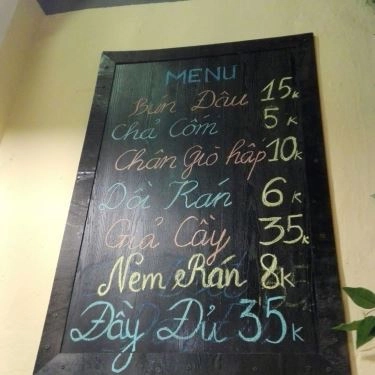 MENU
Bún Đậu 15K
Chả Cốm 5K
Chân Giò hấp 10K
Dồi Rán 6K
Giả Cầy 35K
Nem Rán 8K
Đầy Đủ 35K